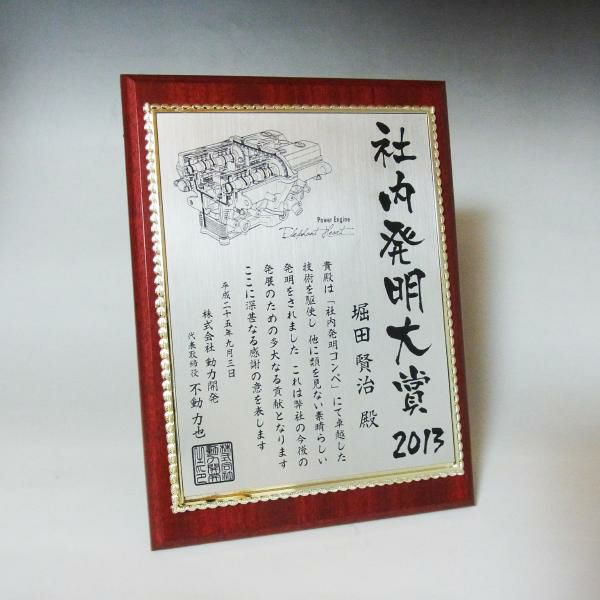 社内発明大賞
2013
Power Engine
Elephant Heart
堀田賢治 殿
貴殿は「社内発明コンペ」にて卓越した
技術を駆使し 他に類を見ない素晴らしい
発明をされました これは弊社の今後の
発展のための多大なる貢献となります
ここに深甚なる感謝の意を表します
平成二十五年九月三日
株式会社 動力開発
代表取締役 不動力也